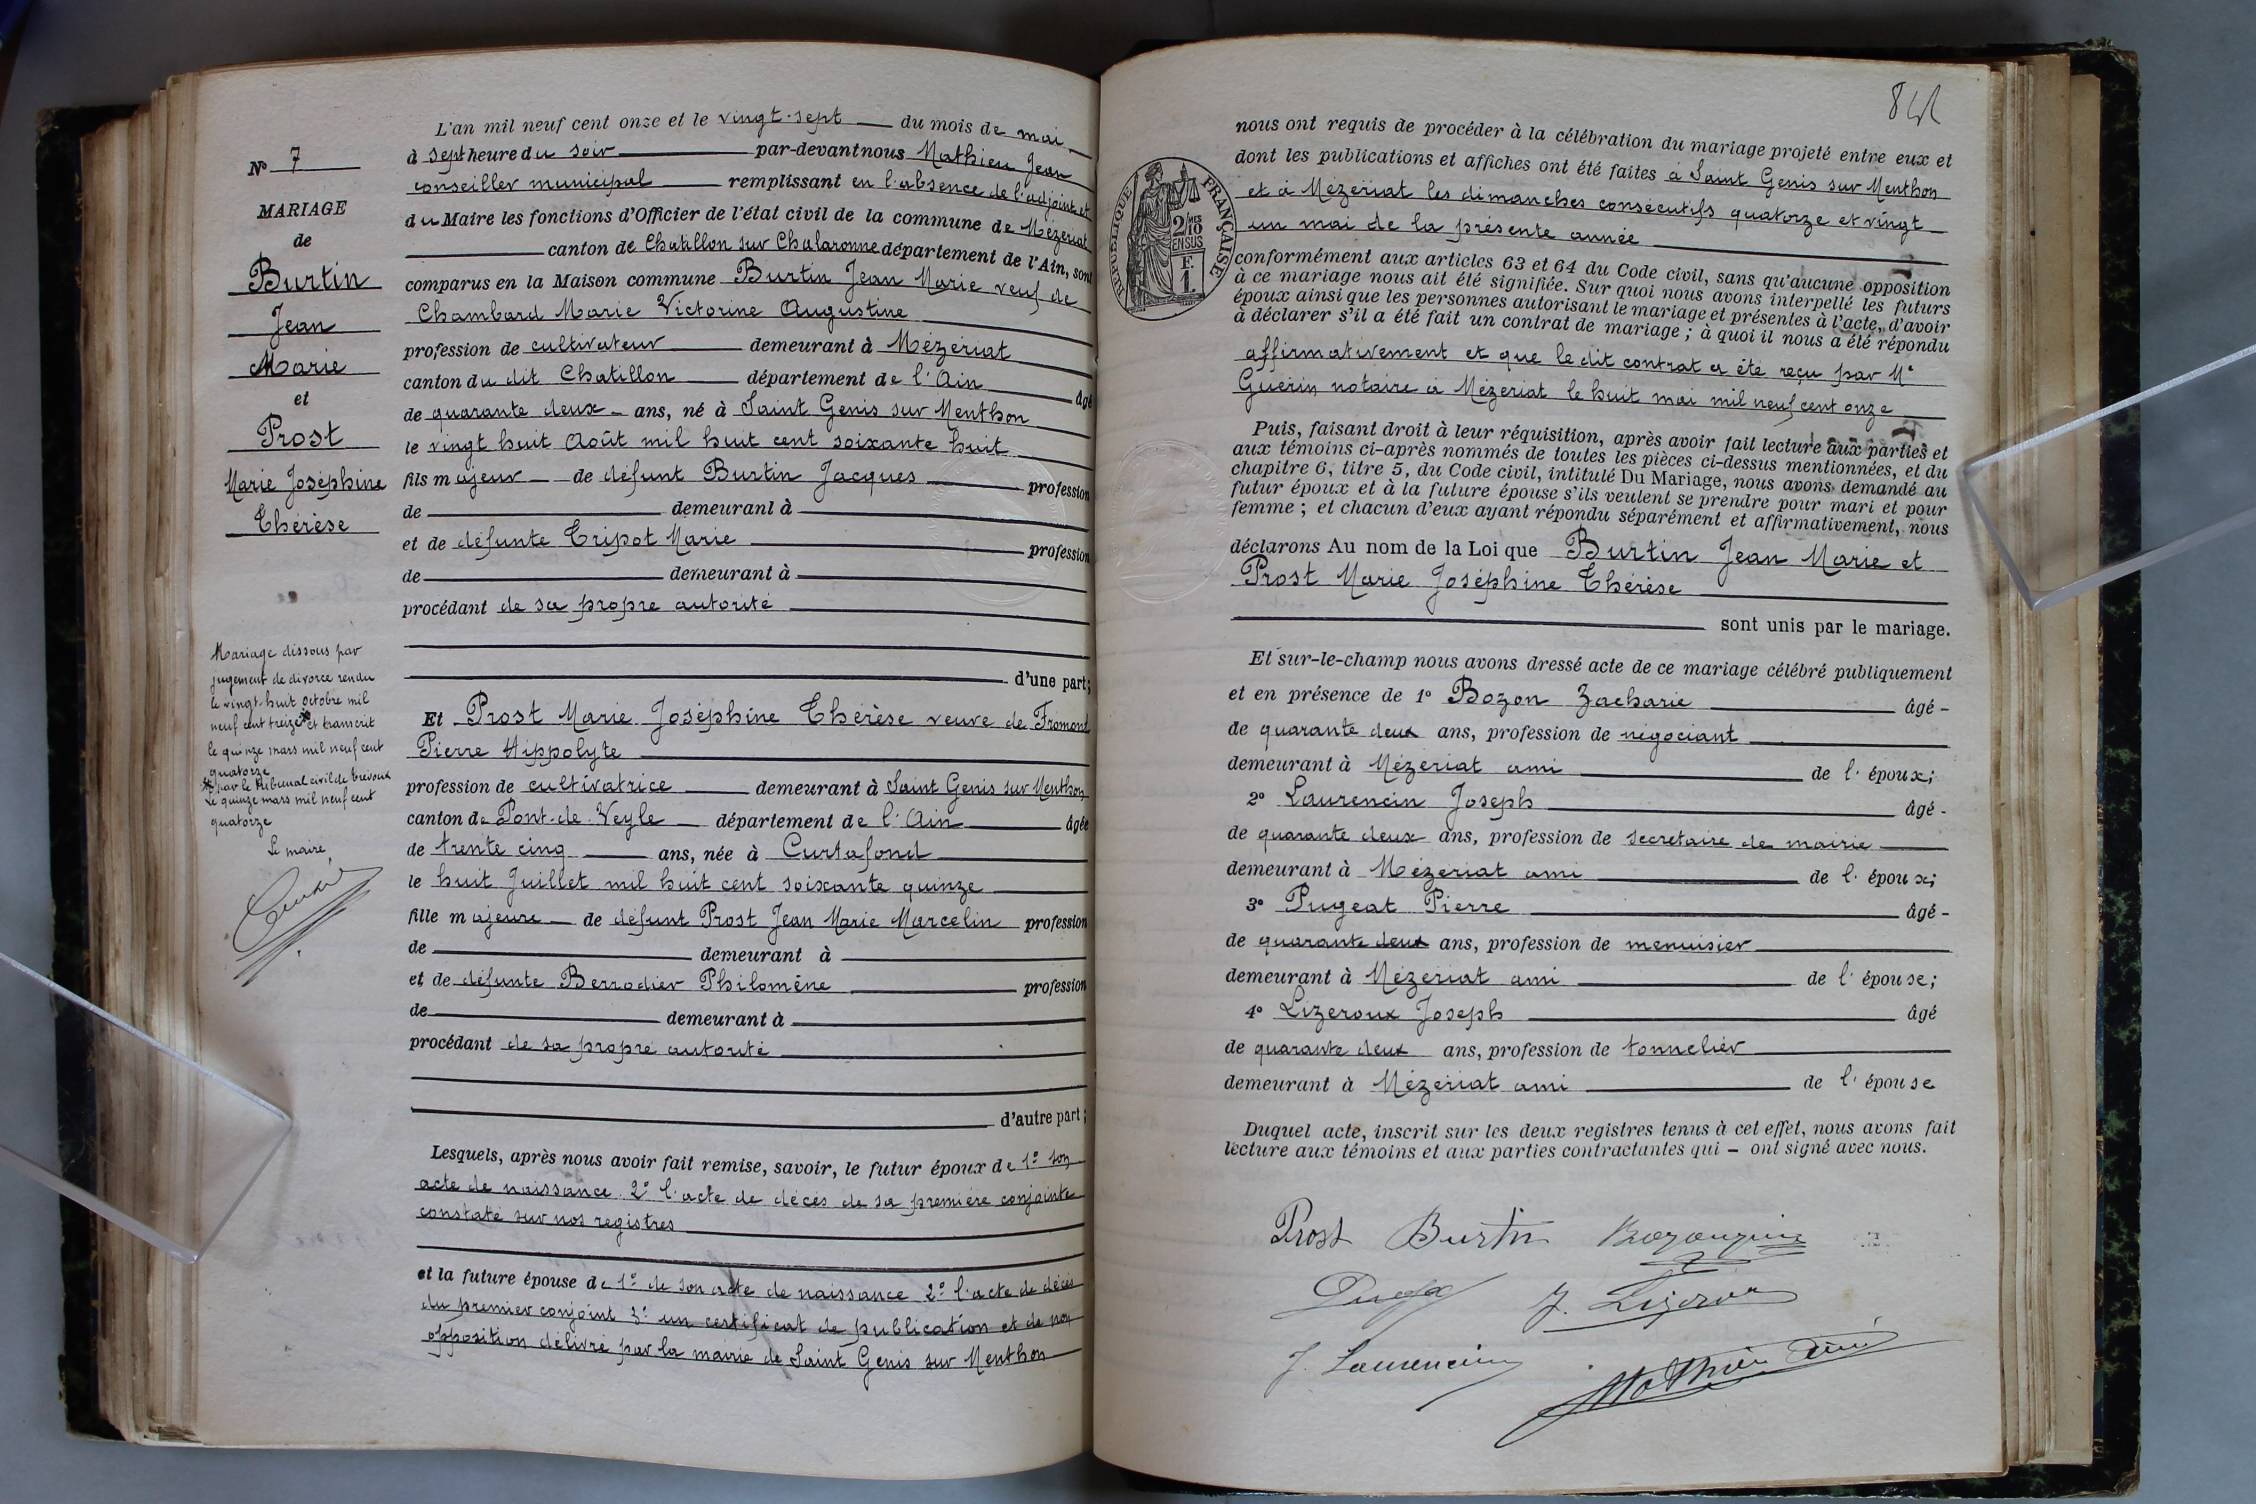 N° 7
MARIAGE
de
Burtin
Jean
Marie
et
Prost
Marie Joséphine
Thérèse
Mariage dissous par
jugement de divorce rendu
le vingt-huit octobre mil
neuf cent treize et transcrit
le quinze mars mil neuf cent
quatorze
par le tribunal civil de Trévoux
le quinze mars mil neuf cent
quatorze
Le maire,
L'an mil neuf cent onze et le vingt-sept du mois de mai
à sept heure du soir par-devant nous Mathieu Jean
conseiller municipal remplissant en l'absence de l'adjoint et
du Maire les fonctions d'Officier de l'état civil de la commune de Mézériat
canton de Chatillon sur Chalaronne département de l'Ain, sont
comparus en la Maison commune Burtin Jean Marie veuf de
Chambard Marie Victorine Augustine
profession de cultivateur demeurant à Mézériat
canton du dit Chatillon département de l'Ain âgé
de quarante deux ans, né à Saint Genis sur Menthon
le vingt huit Août mil huit cent soixante huit
fils majeur de défunt Burtin Jacques profession
de demeurant à
et de défunte Tripot Marie profession
de demeurant à
procédant de sa propre autorité
d'une part;
Et Prost Marie Joséphine Thérèse veuve de Fromont
Pierre Hippolyte
profession de cultivatrice demeurant à Saint Genis sur Menthon
canton de Pont-de-Veyle département de l'Ain âgée
de trente cinq ans, née à Curtafond
le huit Juillet mil huit cent soixante quinze
fille majeure de défunt Prost Jean Marie Marcelin profession
de demeurant à
et de défunte Berrodier Philomène profession
de demeurant à
procédant de sa propre autorité
d'autre part;
Lesquels, après nous avoir fait remise, savoir, le futur époux de 1° son
acte de naissance 2° l'acte de décès de sa première conjointe
constaté sur nos registres
et la future épouse de 1° de son acte de naissance 2° l'acte de décès
du premier conjoint 3° un certificat de publication et de non
opposition délivré par la mairie de Saint Genis sur Menthon
RÉPUBLIQUE FRANÇAISE
2/10
EN SUS
F.
1.
nous ont requis de procéder à la célébration du mariage projeté entre eux et
dont les publications et affiches ont été faites à Saint Genis sur Menthon
et à Mézériat les dimanches consécutifs quatorze et vingt
un mai de la présente année
conformément aux articles 63 et 64 du Code civil, sans qu'aucune opposition
à ce mariage nous ait été signifiée. Sur quoi nous avons interpellé les futurs
époux ainsi que les personnes autorisant le mariage et présentes à l'acte, d'avoir
à déclarer s'il a été fait un contrat de mariage; à quoi il nous a été répondu
affirmativement et que le dit contrat a été reçu par Me
Guérin notaire à Mézériat le huit mai mil neuf cent onze
Puis, faisant droit à leur réquisition, après avoir fait lecture aux parties et
aux témoins ci-après nommés de toutes les pièces ci-dessus mentionnées, et du
chapitre 6, titre 5, du Code civil, intitulé Du Mariage, nous avons demandé au
futur époux et à la future épouse s'ils veulent se prendre pour mari et pour
femme; et chacun d'eux ayant répondu séparément et affirmativement, nous
déclarons Au nom de la Loi que Burtin Jean Marie et
Prost Marie Joséphine Thérèse
sont unis par le mariage.
Et sur-le-champ nous avons dressé acte de ce mariage célébré publiquement
et en présence de 1° Bozon Zacharie âgé
de quarante deux ans, profession de négociant
demeurant à Mézériat ami de l'époux;
2° Laurencin Joseph âgé
de quarante deux ans, profession de secrétaire de mairie
demeurant à Mézériat ami de l'époux;
3° Pugeat Pierre âgé
de quarante deux ans, profession de menuisier
demeurant à Mézériat ami de l'épouse;
4° Lizeroux Joseph âgé
de quarante deux ans, profession de tonnelier
demeurant à Mézériat ami de l'épouse
Duquel acte, inscrit sur les deux registres tenus à cet effet, nous avons fait
lecture aux témoins et aux parties contractantes qui – ont signé avec nous.
Prost Burtin
J. Lizeroux
J. Laurencin
Mathieu